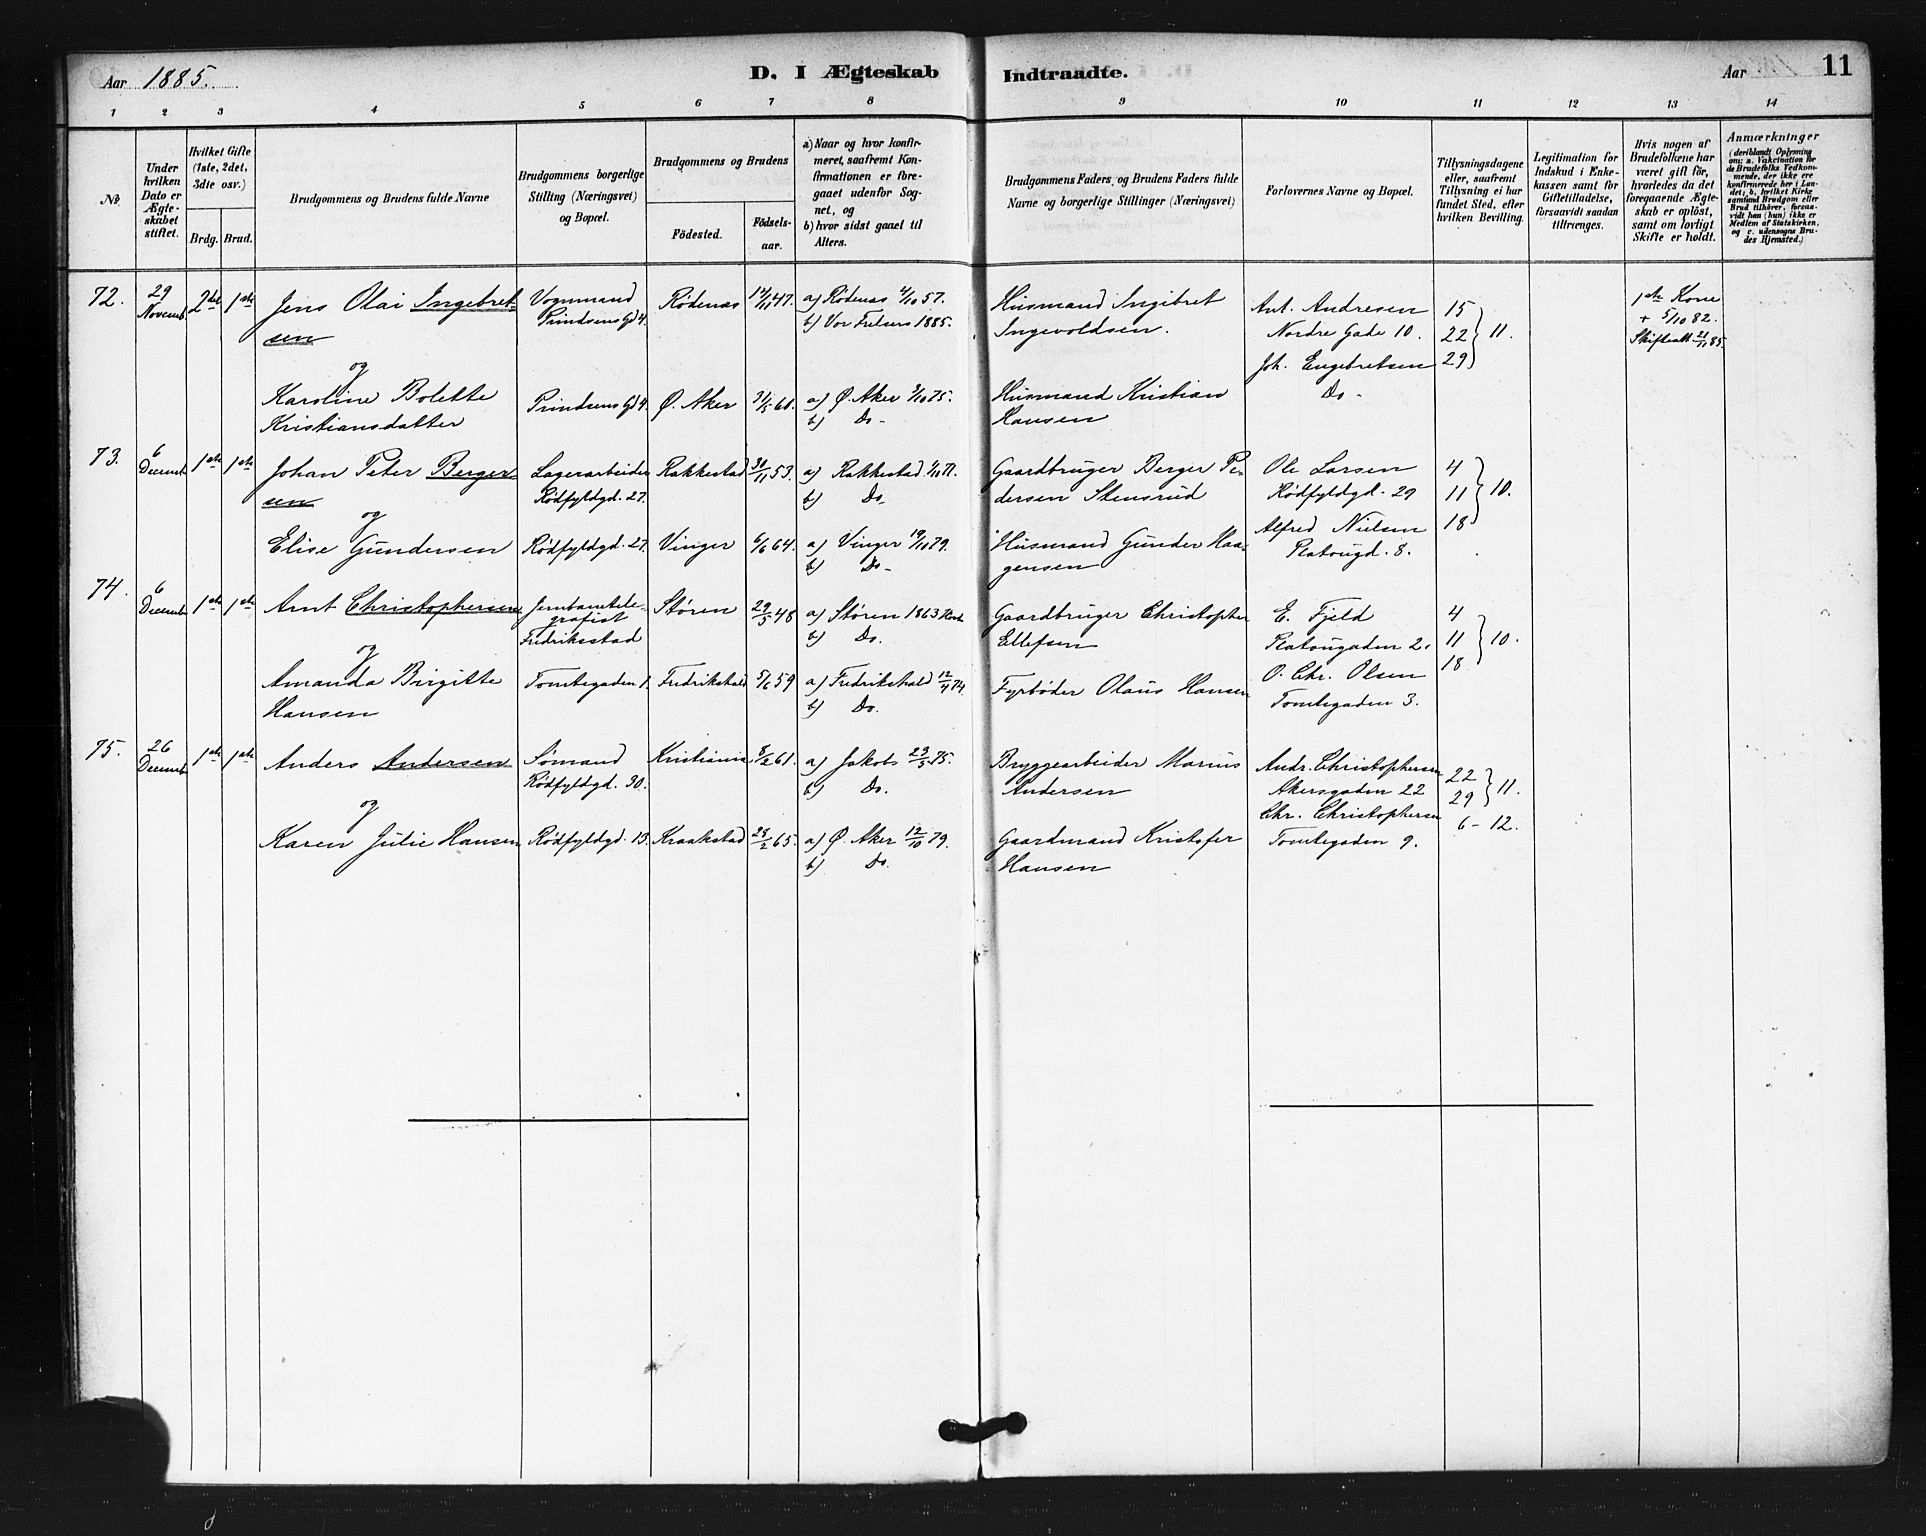 Aar 1885.
D. I Ægteskab
Indtraadte.
Aar
11
1 2 3 4 5 6 7 8 9 10 11 12 13 14
No.
Under hvilken Dato er Ægteskabet stiftet.
Hvilket Gifte (1ste, 2det, 3die osv.)
Brdg. Brud.
Brudgommens og Brudens fulde Navne
Brudgommens borgerlige Stilling (Næringsvei) og Bopæl.
Brudgommens og Brudens
Fødested.
Fødselsaar.
a) Naar og hvor konfirmeret, saafremt Konfirmationen er foregaaet udenfor Sognet, og
b) hvor sidst gaaet til Alters.
Brudgommens Faders, og Brudens Faders fulde Navne og borgerlige Stillinger (Næringsvei)
Forlovernes Navne og Bopæl.
Tillysningsdagene eller, saafremt Tillysning ei har fundet Sted, efter hvilken Bevilling.
Legitimation for Indskud i Enkekassen samt for Giftetilladelse, forsaavidt saadan tiltrænges.
Hvis nogen af Brudefolkene har været gift før, hvorledes da det foregaaende Ægteskab er opløst, samt om lovligt Skifte er holdt.
Anmærkninger
(deriblandt Oplysning om: a. Vakcination for de Brudefolks Vedkommende, der ikke ere konfirmerede her i Landet; b. hvilket Kirkesamfund Brudgom eller Brud tilhører, forsaavidt han (hun) ikke er Medlem af Statskirken, og c. udensogns Brudes Hjemsted.)
72. 29 Novemb. 2det 1ste Jens Olai Ingebretsen Vognmand Prindsens Gd 4. Rødenæs 14/11 47. a) Rødenæs 4/10 57. b) Vor Frelsers 1885. Husmand Ingibret Ingevoldsen. Ant. Andresen Nordre Gade 10. 15 22 29 } 11. 1ste Kone + 5/10 82. Skifteatt. 21/11 85.
og
Karoline Bolette Kristiansdatter Prindsens Gd 4. Ø. Aker 31/5 60. a) Ø. Aker 3/10 75. b) Do. Husmand Kristian Hansen Joh. Engebretsen Do.
73. 6 Decemb. 1ste 1ste Johan Peter Bergersen Lagerarbeider Rødfyldgd. 27. Rakkestad 30/11 53. a) Rakkestad 1/10 71. b) Do. Gaardbruger Berger Pedersen Stensrud Ole Larsen Rødfyldgd. 29 4 11 18 } 10.
og
Elise Gundersen Rødfyldgd. 27. Vinger 6/6 64. a) Vinger 19/10 79. b) Do. Husmand Gunder Haagensen Alfred Nielsen Platougd. 8.
74. 6 Decemb. 1ste 1ste Arnt Christophersen Jernbanetelegrafist Fredriksstad Støren 29/5 48 a) Støren 1863 Høst b) Do. Gaardbruger Christopher Ellefsen E. Fjeld Platougaden 2. 4 11 18 } 10.
og
Amanda Birgitte Hansen Tomtegaden 1. Fredrikshald 5/6 59 a) Fredrikshald 12/4 74. b) Do. Fyrbøder Olaus Hansen O. Chr. Olsen Tomtegaden 3.
75. 26 Decemb. 1ste 1ste Anders Andersen Sømand Rødfyldgd. 30. Kristiania 8/2 61. a) Jakobs 23/5 75. b) Do. Bryggearbeider Marius Andersen Andr. Christophersen Akersgaden 22 22 29 } 11. 6 - 12.
og
Karen Julie Hansen Rødfyldgd. 13. Kraakstad 28/2 65. a) Ø. Aker 12/10 79. b) Do. Gaardmand Kristofer Hansen Chr. Christophersen Tomtegaden 9.